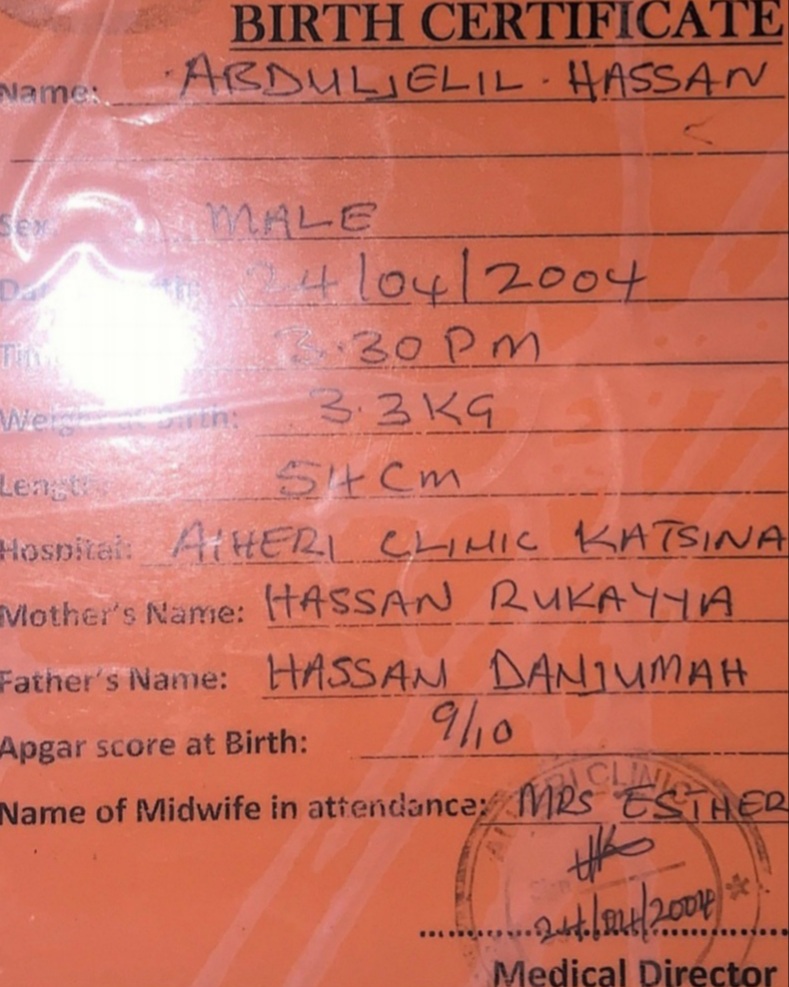 BIRTH CERTIFICATE
Name: ABDULJELIL HASSAN
Sex MALE
24/04/2004
3.30 PM
Weight at Birth: 3.3KG
Length 54 Cm
Hospital: AIHERI CLINIC KATSINA
Mother's Name: HASSAN RUKAYYA
Father's Name: HASSAN DANJUMAH
Apgar score at Birth: 9/10
Name of Midwife in attendance: MRS ESTHER
CLINIC
24/04/2004
Medical Director